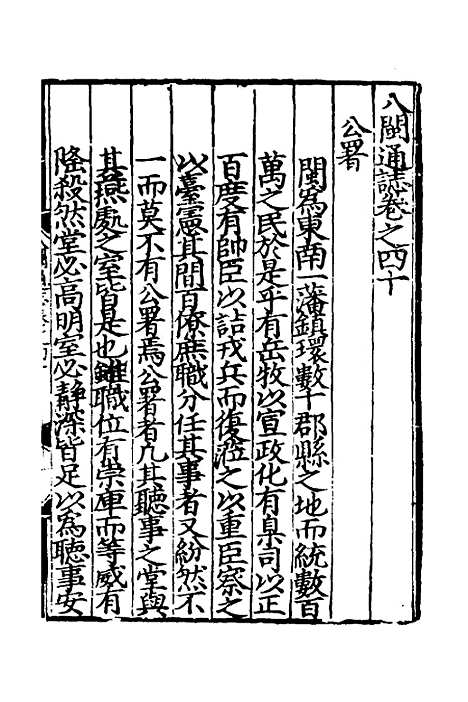 八閩通誌卷之四十
公署
閩為東南一藩鎮環數十郡縣之地而統數百
萬之民於是乎有岳牧以宣政化有臬司以正
百度有帥臣以詰戎兵而復涖之以重臣察之
以臺憲其間百僚庶職分任其事者又紛然不
一而莫不有公署焉公署者凡其聽事之堂與
其燕處之室皆是也雖職位有崇庳而等威有
隆殺然堂必高明室必靜深皆足以為聽事安